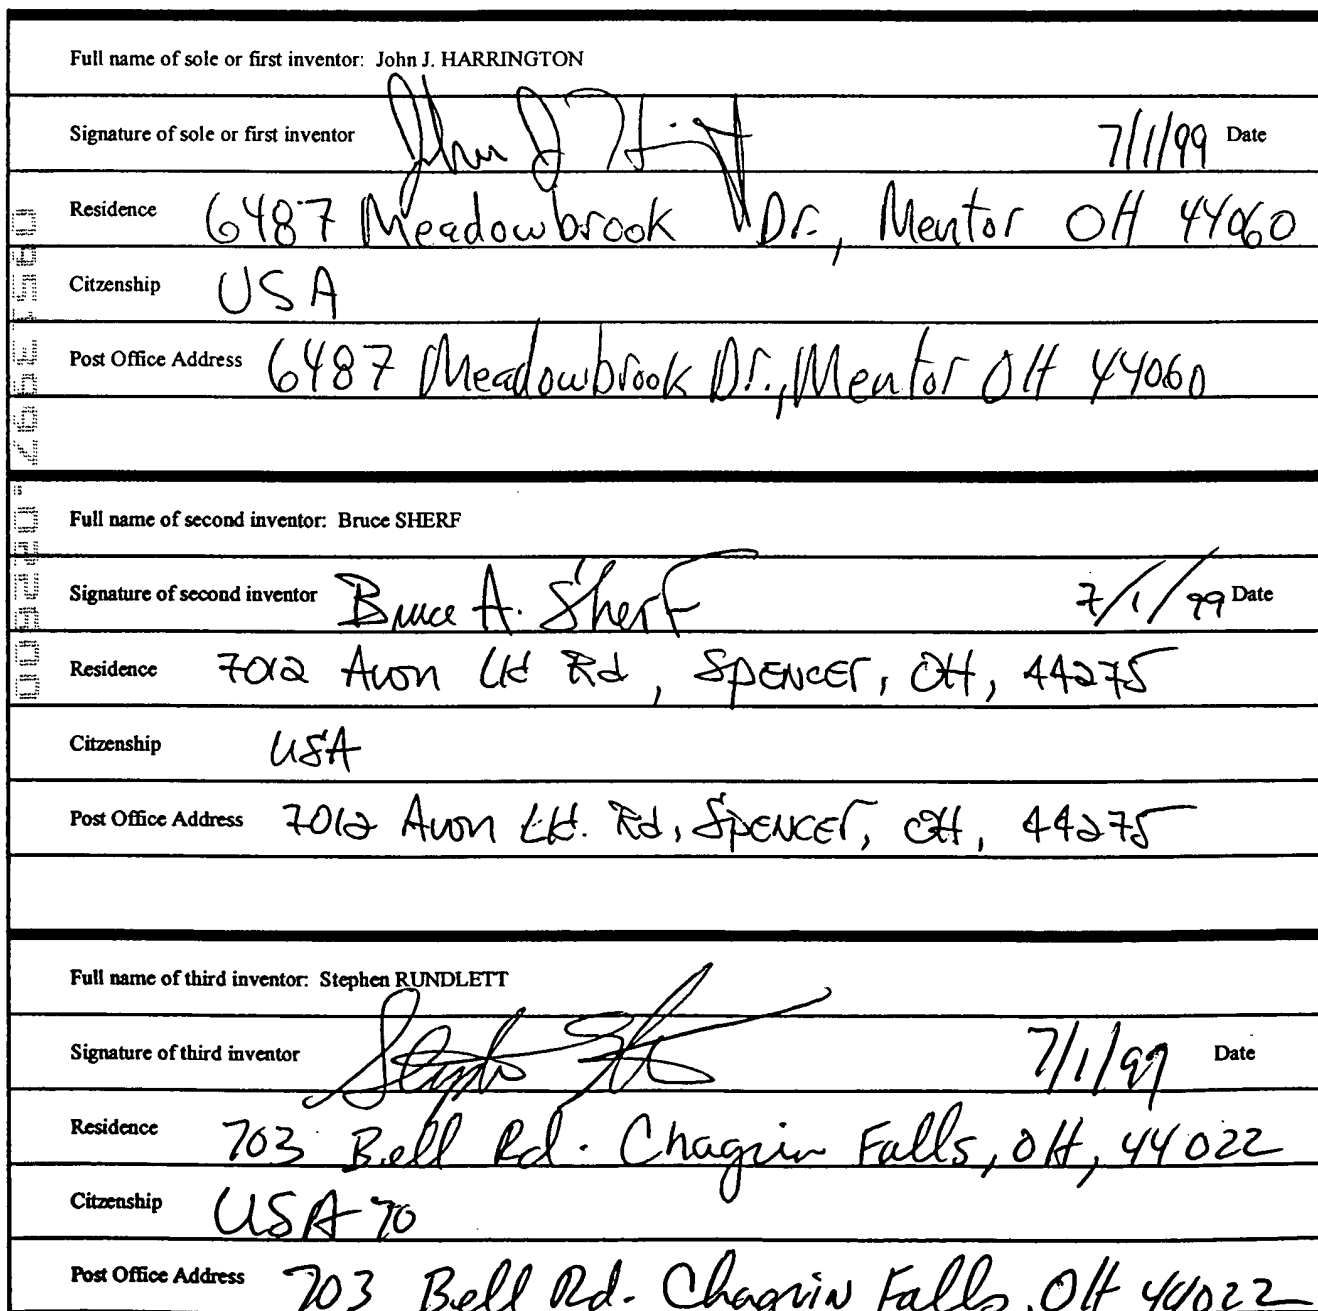 Full name of sole or first inventor: John J. HARRINGTON
Signature of sole or first inventor John J 7/1/99 Date
Residence 6487 Meadowbrook Dr., Mentor OH 44060
Citzenship USA
Post Office Address 6487 Meadowbrook Dr., Mentor OH 44060
Full name of second inventor: Bruce SHERF
Signature of second inventor Bruce A. Sherf 7/1/99 Date
Residence 7012 Avon Rd, SPENCER, OH, 44275
Citzenship USA
Post Office Address 7012 Avon Rd, SPENCER, OH, 44275
Full name of third inventor: Stephen RUNDLETT
Signature of third inventor Stephen 7/1/99 Date
Residence 703 Bell Rd. Chagrin Falls, OH, 44022
Citzenship USA 70
Post Office Address 703 Bell Rd. Chagrin Falls, OH 44022